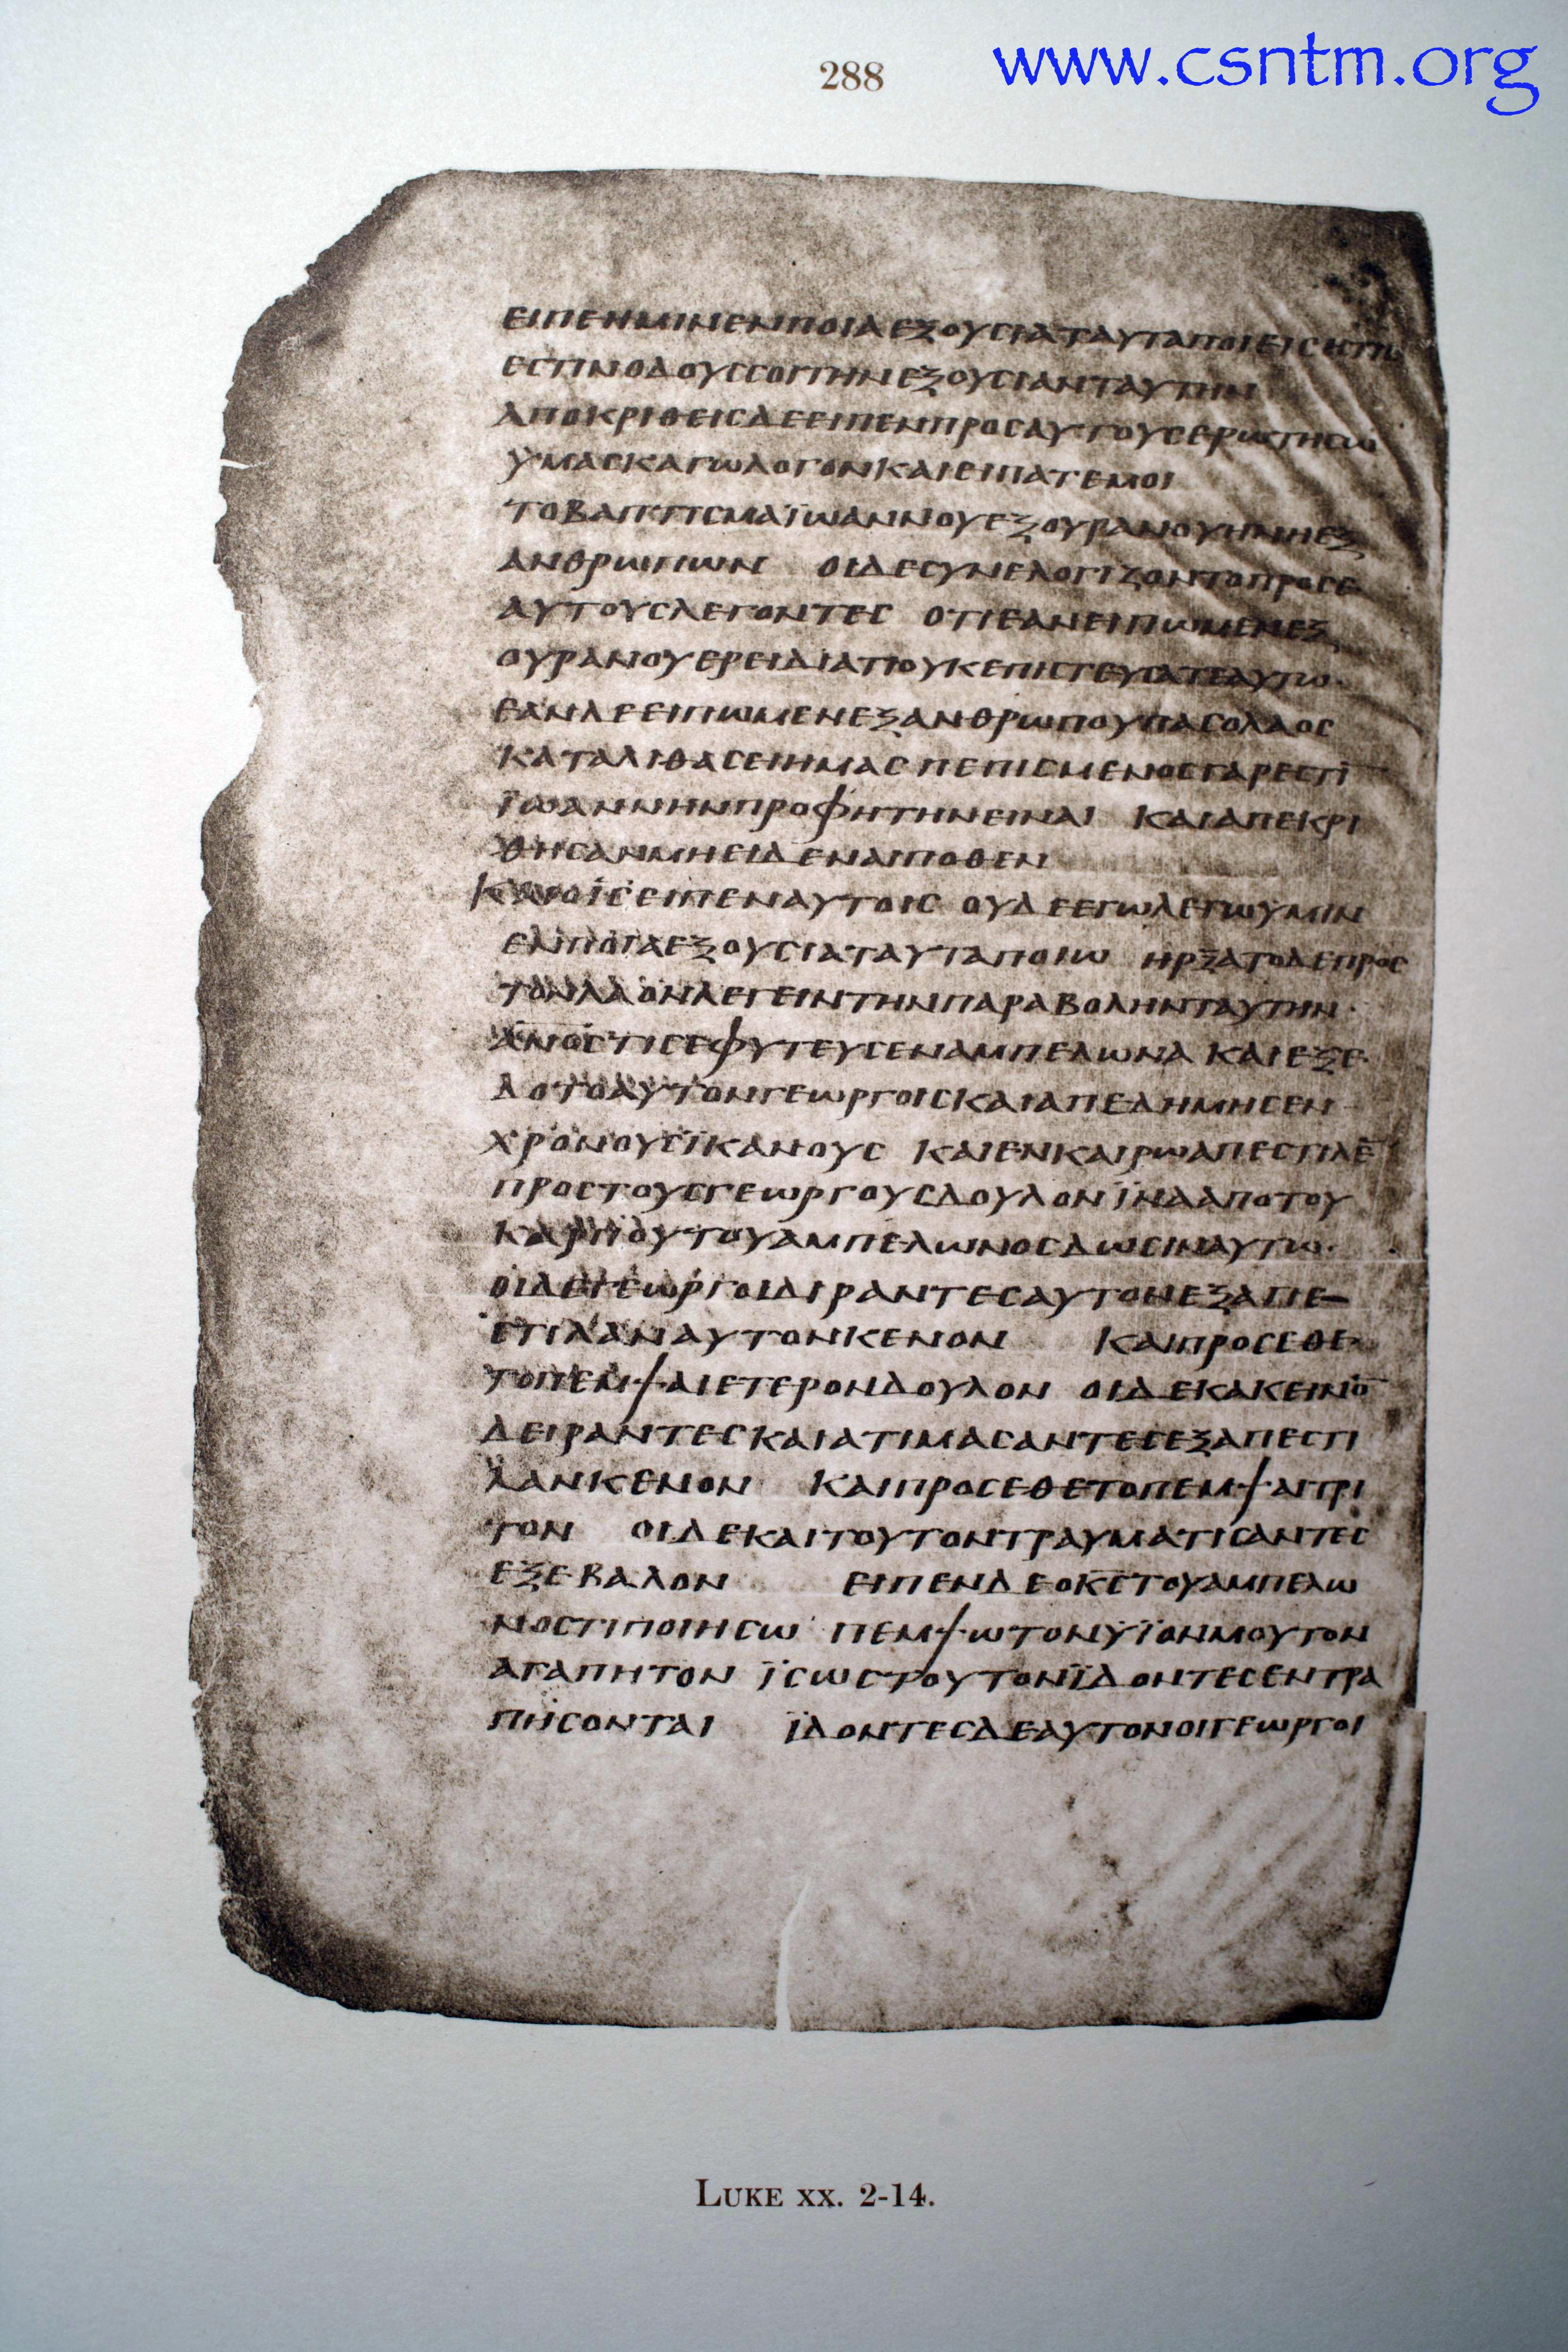 288
www.csntm.org
ΕΙΠΕΗΜΙΝΕΝΠΟΙΑΕΞΟΥCΙΑΤΑΥΤΑΠΟΙΕΙC
ΕCΤΙΝΟΔΟΥCCΟΙΤΗΝΕΞΟΥCΙΑΝΤΑΥΤΗΝ
ΑΠΟΚΡΙΘΕΙCΔΕΕΙΠΕΝΠΡΟCΑΥΤΟΥCΕΡΩΤΗCΩ
ΥΜΑCΚΑΓΩΛΟΓΟΝΚΑΙΕΙΠΑΤΕΜΟΙ
ΤΟΒΑΠΤΙCΜΑΪΩΑΝΝΟΥΕΞΟΥΡΑΝΟΥΗΝΗΕΞ
ΑΝΘΡΩΠΩΝ ΟΙΔΕCΥΝΕΛΟΓΙΖΟΝΤΟΠΡΟCΕ
ΑΥΤΟΥCΛΕΓΟΝΤΕC ΟΤΙΕΑΝΕΙΠΩΜΕΝΕΞ
ΟΥΡΑΝΟΥΕΡΕΙΔΙΑΤΙΟΥΚΕΠΙCΤΕΥCΑΤΕΑΥΤΩ·
ΕΑΝΔΕΕΙΠΩΜΕΝΕΞΑΝΘΡΩΠΟΥΠΑCΟΛΑΟC
ΚΑΤΑΛΙΘΑCΕΙΗΜΑCΠΕΠΙCΜΕΝΟCΓΑΡΕCΤΙ̅
ΪΩΑΝΝΗΝΠΡΟΦΗΤΗΝΕΙΝΑΙ ΚΑΙΑΠΕΚΡΙ
ΘΗCΑΝΜΗΕΙΔΕΝΑΙΠΟΘΕΝ
ΚΑΙΟΙ̅C̅ΕΙΠΕΝΑΥΤΟΙC ΟΥΔΕΕΓΩΛΕΓΩΥΜΙΝ
ΕΝΠΟΙΑΕΞΟΥCΙΑΤΑΥΤΑΠΟΙΩ ΗΡΞΑΤΟΔΕΠΡΟC
ΤΟΝΛΑΟΝΛΕΓΕΙΝΤΗΝΠΑΡΑΒΟΛΗΝΤΑΥΤΗΝ·
Α̅Ν̅Ο̅C̅ΤΙCΕΦΥΤΕΥCΕΝΑΜΠΕΛΩΝΑ ΚΑΙΕΞΕ
ΔΟΤΟΑΥΤΟΝΓΕΩΡΓΟΙCΚΑΙΑΠΕΔΗΜΗCΕΝ
ΧΡΟΝΟΥCΪΚΑΝΟΥC ΚΑΙΕΝΚΑΙΡΩΑΠΕCΤΙΛΕ̅
ΠΡΟCΤΟΥCΓΕΩΡΓΟΥCΔΟΥΛΟΝΪΝΑΑΠΟΤΟΥ
ΚΑΡΠΟΥΤΟΥΑΜΠΕΛΩΝΟCΔΩCΙΝΑΥΤΩ·
ΟΙΔΕΓΕΩΡΓΟΙΔΙΡΑΝΤΕCΑΥΤΟΝΕΞΑΠΕ
CΤΙΛΑΝΑΥΤΟΝΚΕΝΟΝ ΚΑΙΠΡΟCΕΘΕ
ΤΟΠΕΜΨΑΙΕΤΕΡΟΝΔΟΥΛΟΝ ΟΙΔΕΚΑΚΕΙΝΟ̅
ΔΕΙΡΑΝΤΕCΚΑΙΑΤΙΜΑCΑΝΤΕCΕΞΑΠΕCΤΙ
ΛΑΝΚΕΝΟΝ ΚΑΙΠΡΟCΕΘΕΤΟΠΕΜΨΑΙΤΡΙ
ΤΟΝ ΟΙΔΕΚΑΙΤΟΥΤΟΝΤΡΑΥΜΑΤΙCΑΝΤΕC
ΕΞΕΒΑΛΟΝ ΕΙΠΕΝΔΕΟΚ̅C̅ΤΟΥΑΜΠΕΛΩ
ΝΟCΤΙΠΟΙΗCΩ ΠΕΜΨΩΤΟΝΥΪΟΝΜΟΥΤΟΝ
ΑΓΑΠΗΤΟΝ ΪCΩCΤΟΥΤΟΝΪΔΟΝΤΕCΕΝΤΡΑ
ΠΗCΟΝΤΑΙ ΪΔΟΝΤΕCΔΕΑΥΤΟΝΟΙΓΕΩΡΓΟΙ
LUKE XX. 2-14.